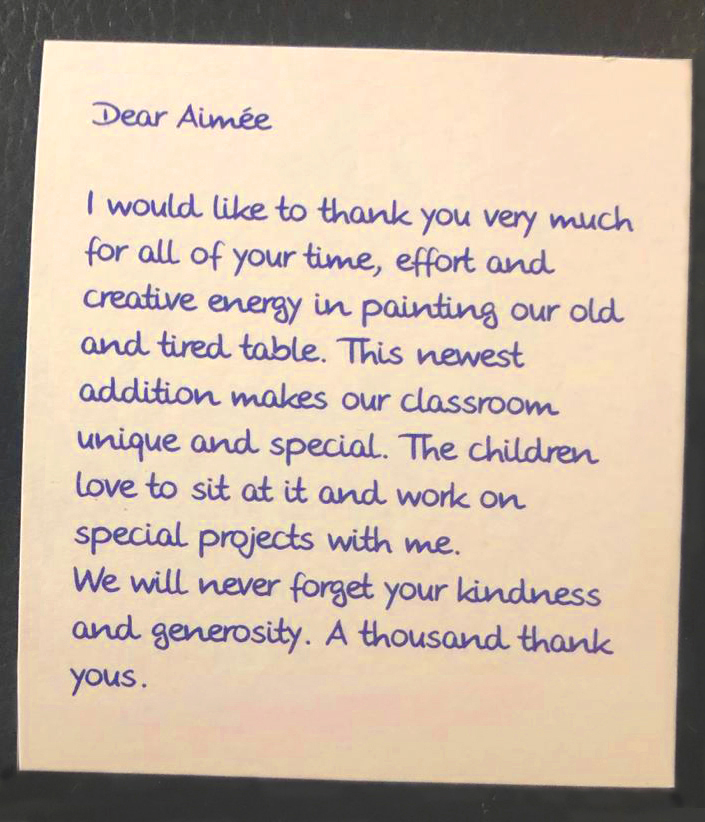 Dear Aimée
I would like to thank you very much
for all of your time, effort and
creative energy in painting our old
and tired table. This newest
addition makes our classroom
unique and special. The children
love to sit at it and work on
special projects with me.
We will never forget your kindness
and generosity. A thousand thank
yous.